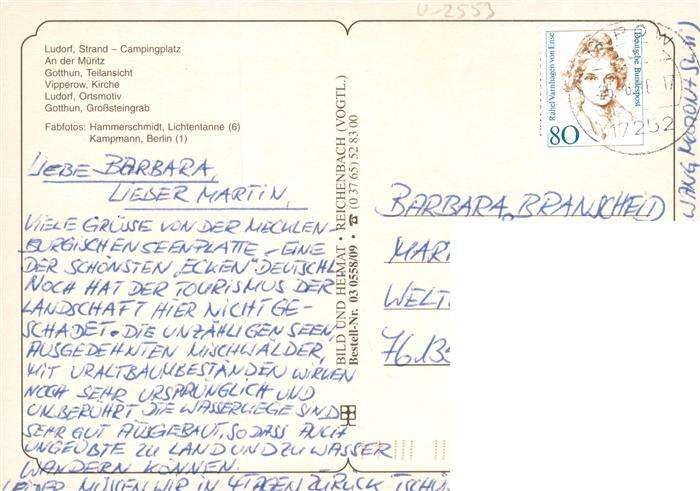 U-2553
Ludorf, Strand – Campingplatz
An der Müritz
Gotthun, Teilansicht
Vipperow, Kirche
Ludorf, Ortsmotiv
Gotthun, Großsteingrab
Fabfotos: Hammerschmidt, Lichtentanne (6)
Kampmann, Berlin (1)
LIEBE BARBARA,
LIEBER MARTIN,
VIELE GRÜSSE VON DER MECKLEN-
BURGISCHEN SEENPLATTE – EINE
DER SCHÖNSTEN „ECKEN" DEUTSCHL
NOCH HAT DER TOURISMUS DER
LANDSCHAFT HIER NICHT GE-
SCHADET. DIE UNZÄHLIGEN SEEN,
AUSGEDEHNTEN MISCHWÄLDER,
MIT URALTBAUMBESTÄNDEN WIRKEN
NOCH SEHR URSPRÜNGLICH UND
UNBERÜHRT. DIE WASSERLIEGE SIND
SEHR GUT AUSGEBAUT, SODASS AUCH
UNGEÜBTE ZU LAND UND ZU WASSER
WANDERN KÖNNEN.
LEIDER MÜSSEN WIR IN 4 TAGEN ZURÜCK TSCHÜ
BILD UND HEIMAT • REICHENBACH (VOGTL.)
Bestell-Nr. 03 0558/09 • ☎ (0 37 65) 52 83 00
Rahel Varnhagen von Ense
Deutsche Bundespost
80
17252
BARBARA, BRANSCHEID
MART
WELT
76.135